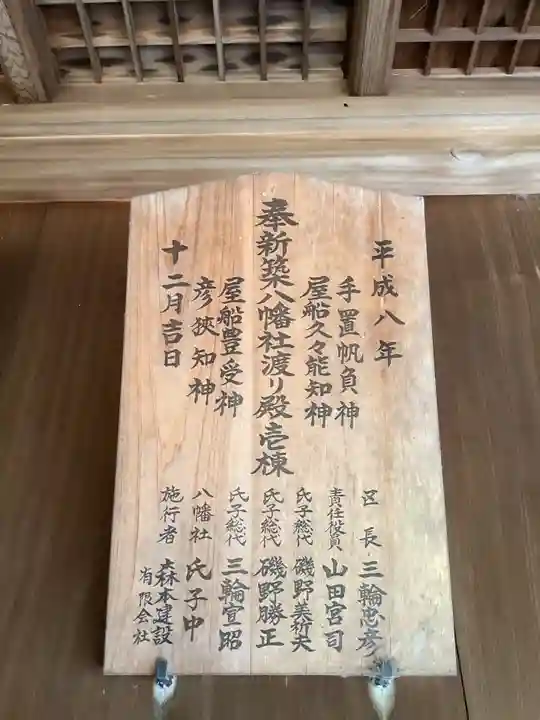 平成八年
手置帆負神
屋船久々能知神
奉新築八幡社渡り殿壱棟
屋船豊受神
彦狭知神
十二月吉日
区長 三輪忠彦
責任役員 山田宮司
氏子総代 磯野美祈夫
氏子総代 磯野勝正
氏子総代 三輪宣昭
八幡社 氏子中
施行者 森本建設
有限会社